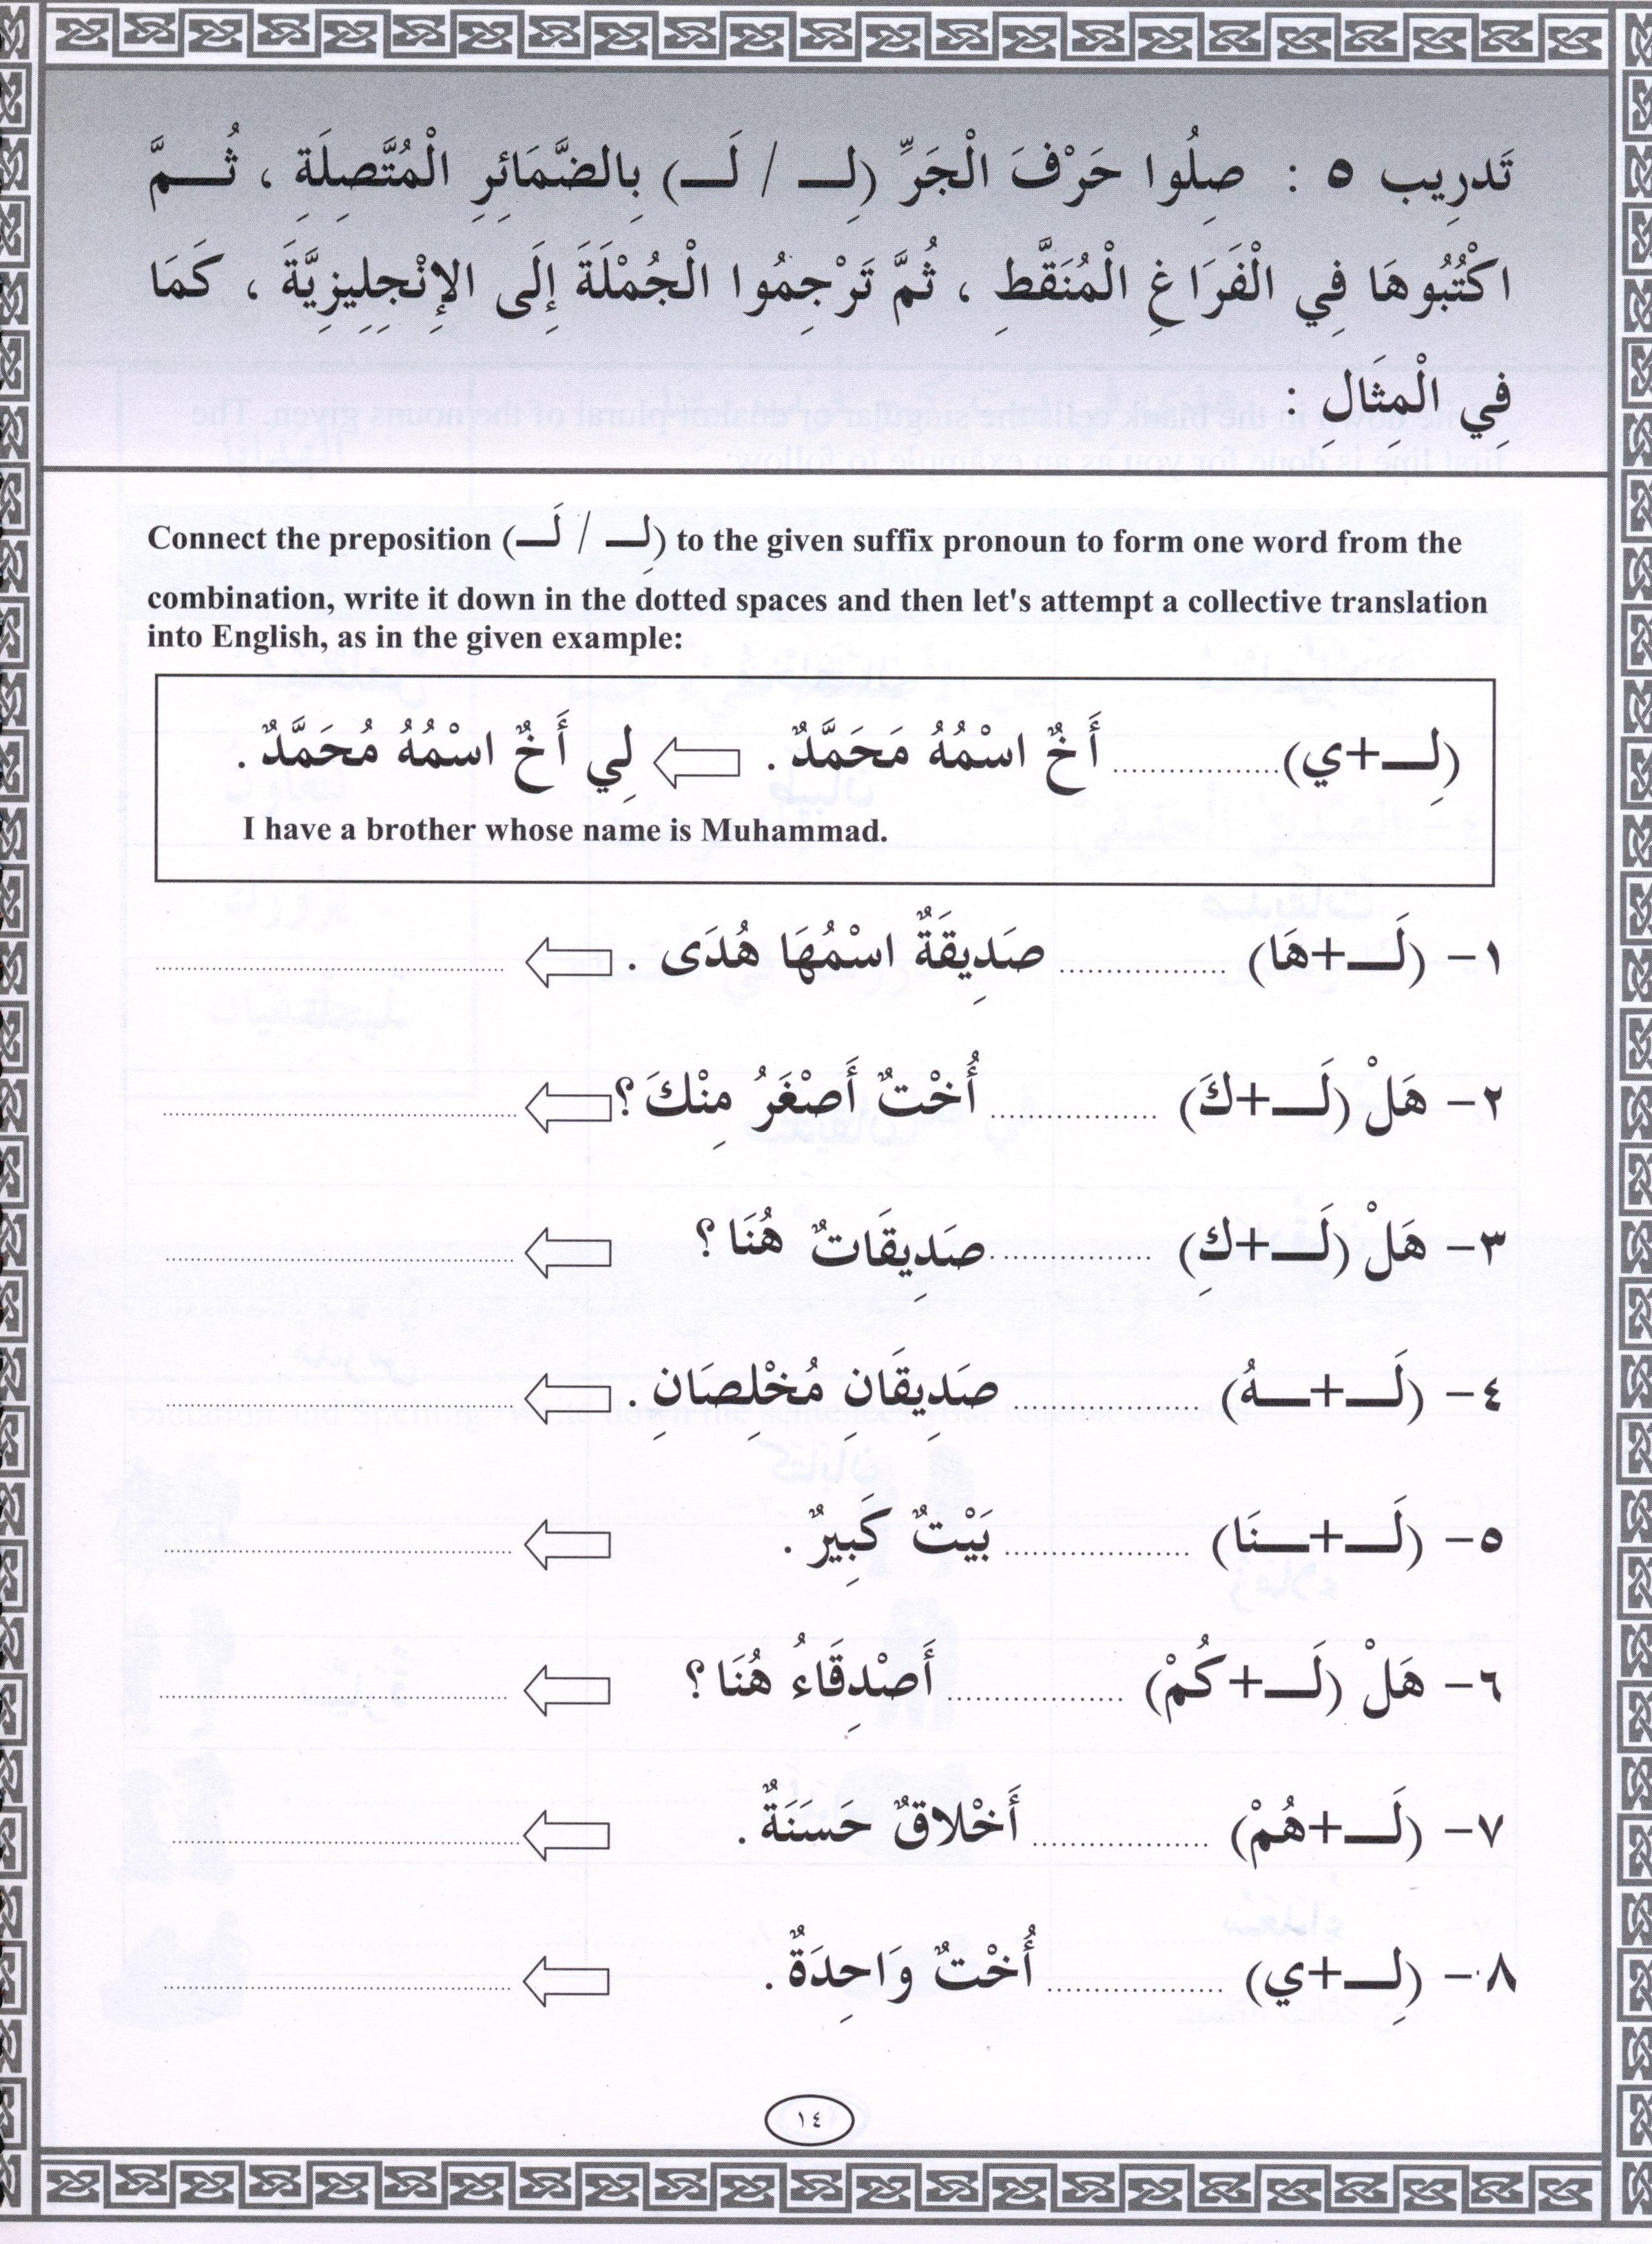 تَدرِيب ٥ : صِلُوا حَرْفَ الْجَرِّ (لِــ / لَــ) بِالضَّمَائِرِ الْمُتَّصِلَةِ ، ثُــمَّ
اكْتُبُوهَا فِي الْفَرَاغِ الْمُنَقَّطِ ، ثُمَّ تَرْجِمُوا الْجُمْلَةَ إِلَى الإِنْجِلِيزِيَّةَ ، كَمَا
فِي الْمِثَالِ :
Connect the preposition (لِــ / لَــ) to the given suffix pronoun to form one word from the
combination, write it down in the dotted spaces and then let's attempt a collective translation
into English, as in the given example:
(لِــ+ي)................. أَخٌ اسْمُهُ مَحَمَّدٌ . لِي أَخٌ اسْمُهُ مُحَمَّدٌ .
I have a brother whose name is Muhammad.
١- (لَــ+هَا) ................. صَدِيقَةٌ اسْمُهَا هُدَى . .................
٢- هَلْ (لَــ+كَ) ................. أُخْتٌ أَصْغَرُ مِنْكَ؟ .................
٣- هَلْ (لَــ+كِ) .................صَدِيقَاتٌ هُنَا ؟ .................
٤- (لَــ+ــهُ) ................. صَدِيقَانِ مُخْلِصَانِ . .................
٥- (لَــ+ــنَا) ................. بَيْتٌ كَبِيرٌ . .................
٦- هَلْ (لَــ+كُمْ) ................. أَصْدِقَاءُ هُنَا ؟ .................
٧- (لَــ+هُمْ) ................. أَخْلاقٌ حَسَنَةٌ . .................
٨- (لِــ+ي) ................. أُخْتٌ وَاحِدَةٌ . .................
١٤